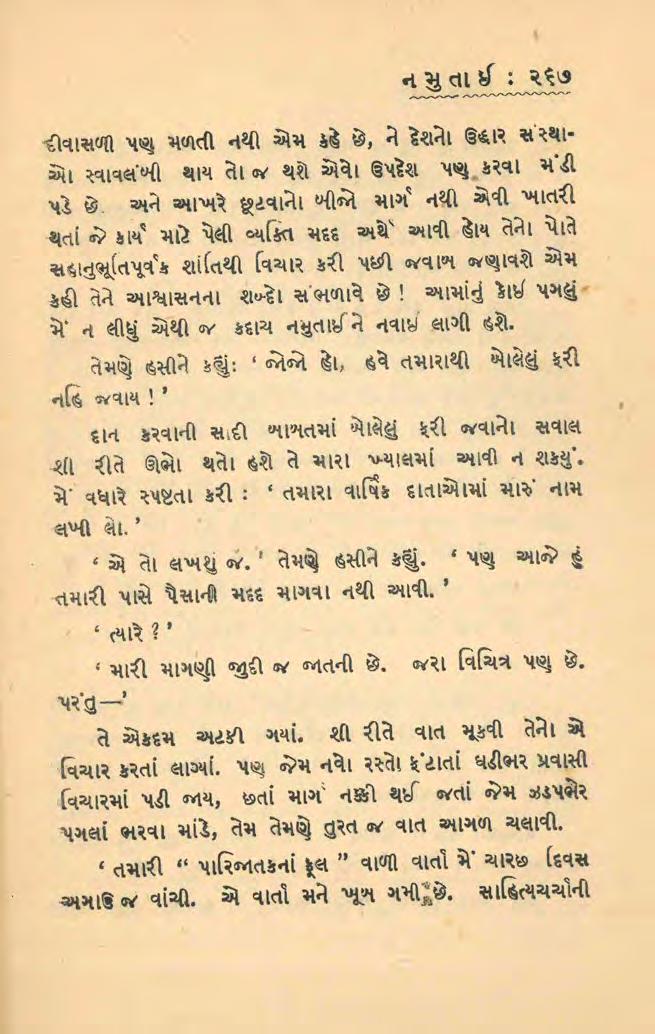 નમુતાઈ : ૨૬૭
દીવાસળી પણ મળતી નથી એમ કહે છે, ને દેશનો ઉદ્ધાર સંસ્થા-
ઓ સ્વાવલંબી થાય તો જ થશે એવો ઉપદેશ પણ કરવા મંડી
પડે છે. અને આખરે છૂટવાનો બીજો માર્ગ નથી એવી ખાતરી
થતાં જે કાર્ય માટે પેલી વ્યક્તિ મદદ અર્થે આવી હોય તેનો પોતે
સહાનુભૂતિપૂર્વક શાંતિથી વિચાર કરી પછી જવાબ જણાવશે એમ
કહી તેને આશ્વાસનના શબ્દો સંભળાવે છે ! આમાંનું કોઈ પગલું
મેં ન લીધું એથી જ કદાચ નમુતાઈને નવાઈ લાગી હશે.
તેમણે હસીને કહ્યું: ‘ જોજો હો, હવે તમારાથી બોલેલું ફરી
નહિ જવાય ! ’
દાન કરવાની સાદી બાબતમાં બોલેલું ફરી જવાનો સવાલ
શી રીતે ઊભો થતો હશે તે મારા ખ્યાલમાં આવી ન શક્યું.
મેં વધારે સ્પષ્ટતા કરી : ‘ તમારા વાર્ષિક દાતાઓમાં મારું નામ
લખી લો. ’
‘ એ તો લખશું જ. ’ તેમણે હસીને કહ્યું. ‘ પણ આજે હું
તમારી પાસે પૈસાની મદદ માગવા નથી આવી. ’
‘ ત્યારે ? ’
‘ મારી માગણી જુદી જ જાતની છે. જરા વિચિત્ર પણ છે.
પરંતુ—’
તે એકદમ અટકી ગયાં. શી રીતે વાત મૂકવી તેનો એ
વિચાર કરતાં લાગ્યાં. પણ જેમ નવો રસ્તો ફંટાતાં ઘડીભર પ્રવાસી
વિચારમાં પડી જાય, છતાં માર્ગ નક્કી થઈ જતાં જેમ ઝડપભેર
પગલાં ભરવા માંડે, તેમ તેમણે તુરત જ વાત આગળ ચલાવી.
‘ તમારી “ પારિજાતકનાં ફૂલ ” વાળી વાર્તા મેં ચારછ દિવસ
અગાઉ જ વાંચી. એ વાર્તા મને ખૂબ ગમી છે. સાહિત્યચર્ચાની